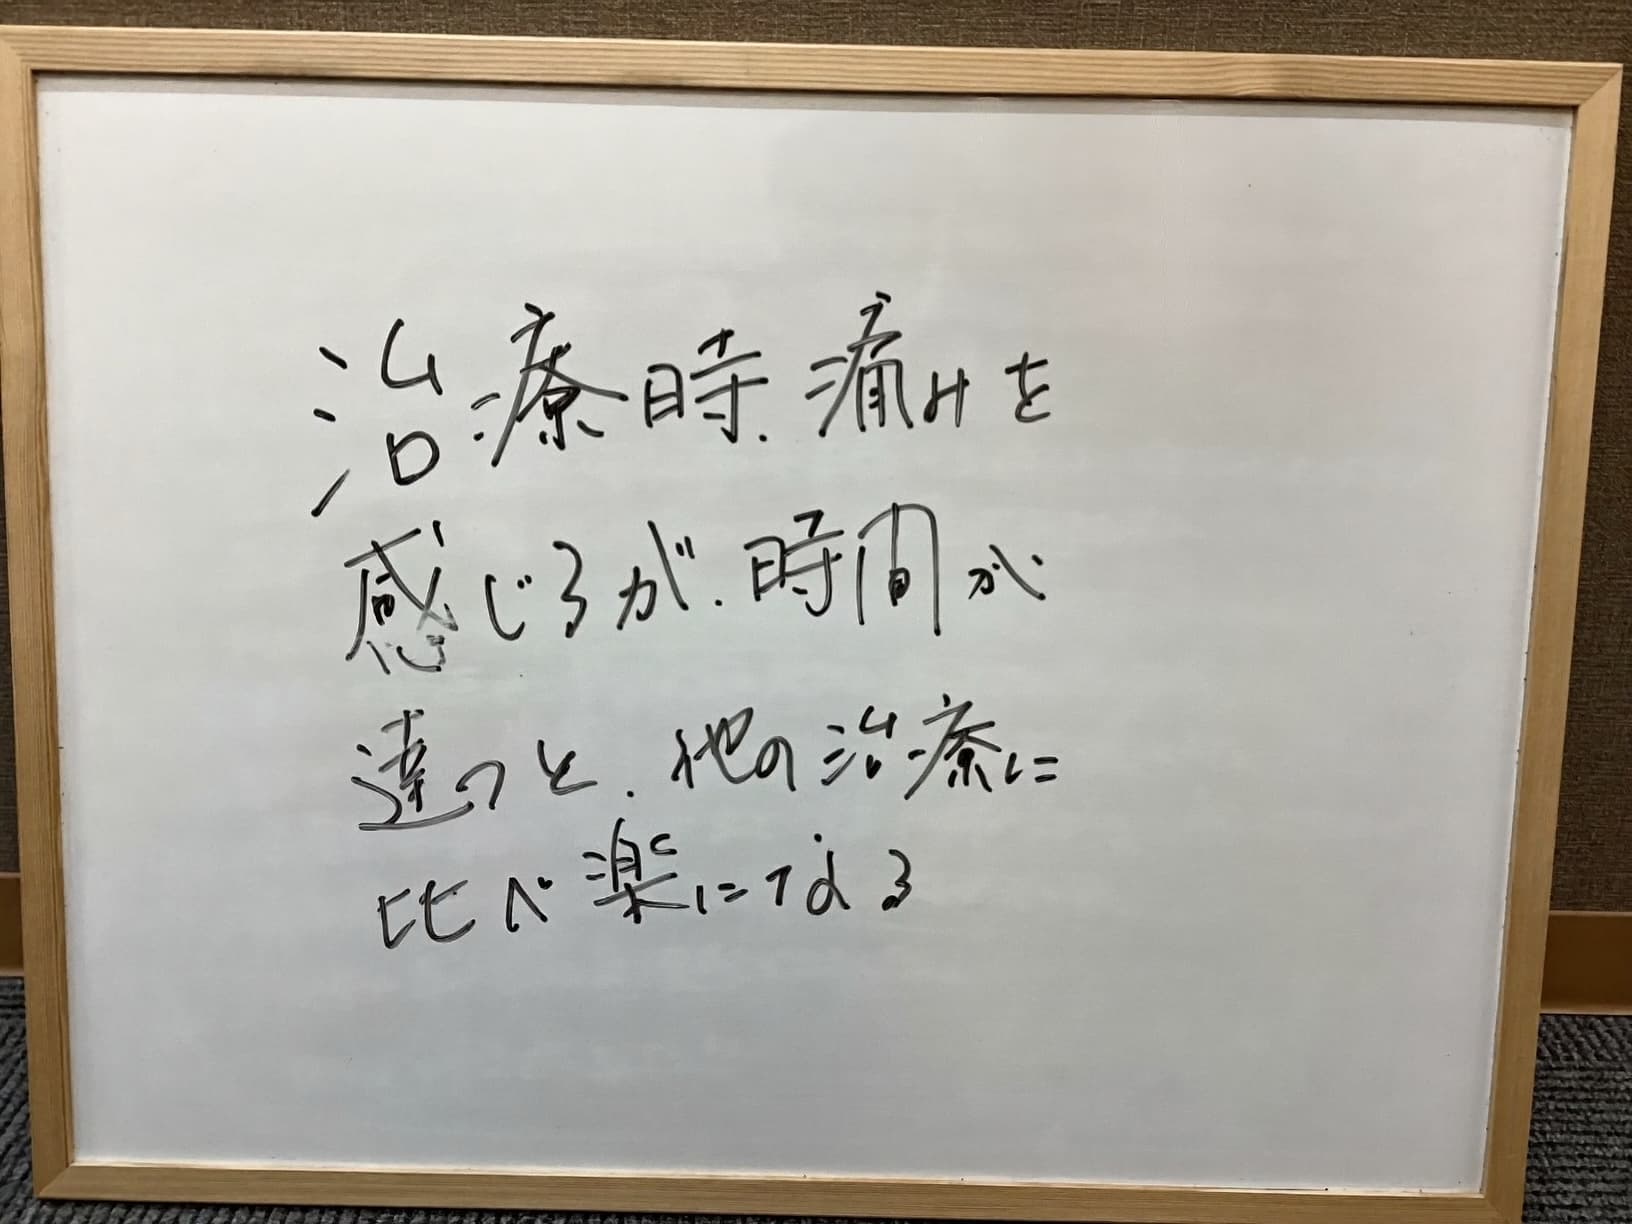 治療時、痛みを
感じるが、時間が
違つと、他の治療に
比べ楽になる